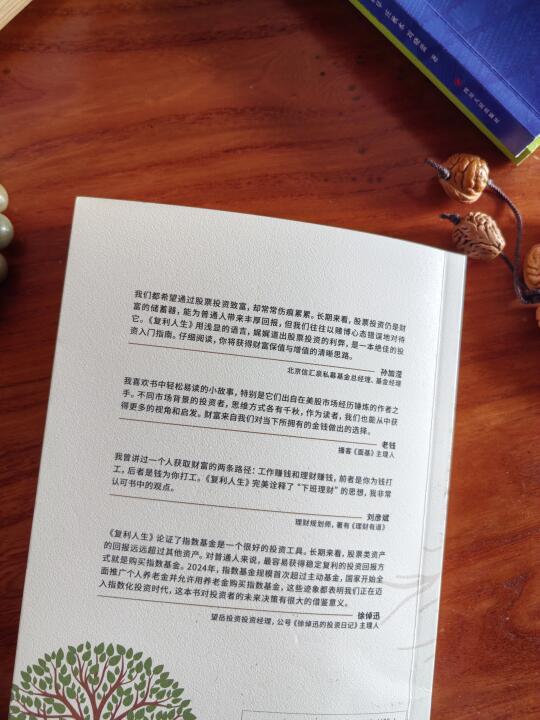 四川人民出版社
我们都希望通过股票投资致富，却常常伤痕累累。长期来看，股票投资仍是财
富的储蓄器，能为普通人带来丰厚回报，但我们往往以赌博心态错误地对待
它。《复利人生》用浅显的语言，娓娓道出股票投资的利弊，是一本绝佳的投
资入门指南。仔细阅读，你将获得财富保值与增值的清晰思路。
孙加滢
北京信汇泉私募基金总经理、基金经理
我喜欢书中轻松易读的小故事，特别是它们出自在美股市场经历锤炼的作者之
手。不同市场背景的投资者，思维方式各有千秋，作为读者，我们也能从中获
得更多的视角和启发。财富来自我们对当下所拥有的金钱做出的选择。
老钱
播客《面基》主理人
我曾讲过一个人获取财富的两条路径：工作赚钱和理财赚钱，前者是你为钱打
工，后者是钱为你打工。《复利人生》完美诠释了“下班理财”的思想，我非常
认可书中的观点。
刘彦斌
理财规划师，著有《理财有道》
《复利人生》论证了指数基金是一个很好的投资工具。长期来看，股票类资产
的回报远远超过其他资产。对普通人来说，最容易获得稳定复利的投资回报方
式就是购买指数基金。2024年，指数基金规模首次超过主动基金，国家开始全
面推广个人养老金并允许用养老金购买指数基金，这些迹象都表明我们正在迈
入指数化投资时代，这本书对投资者的未来决策有很大的借鉴意义。
徐倬迅
望岳投资投资经理，公号《徐倬迅的投资日记》主理人